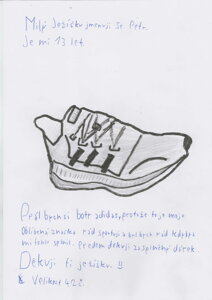 Milý Ježíšku jmenuji se Petr
Je mi 13 let.
Přál bych si boty adidas, protože to je moje
Oblíbená značka rád sportuji a byl bych rád kdyby
mi tohle splnil. Předem děkuji za splněný dárek
Děkuji ti ježíšku. !!
Velikost 42 2.